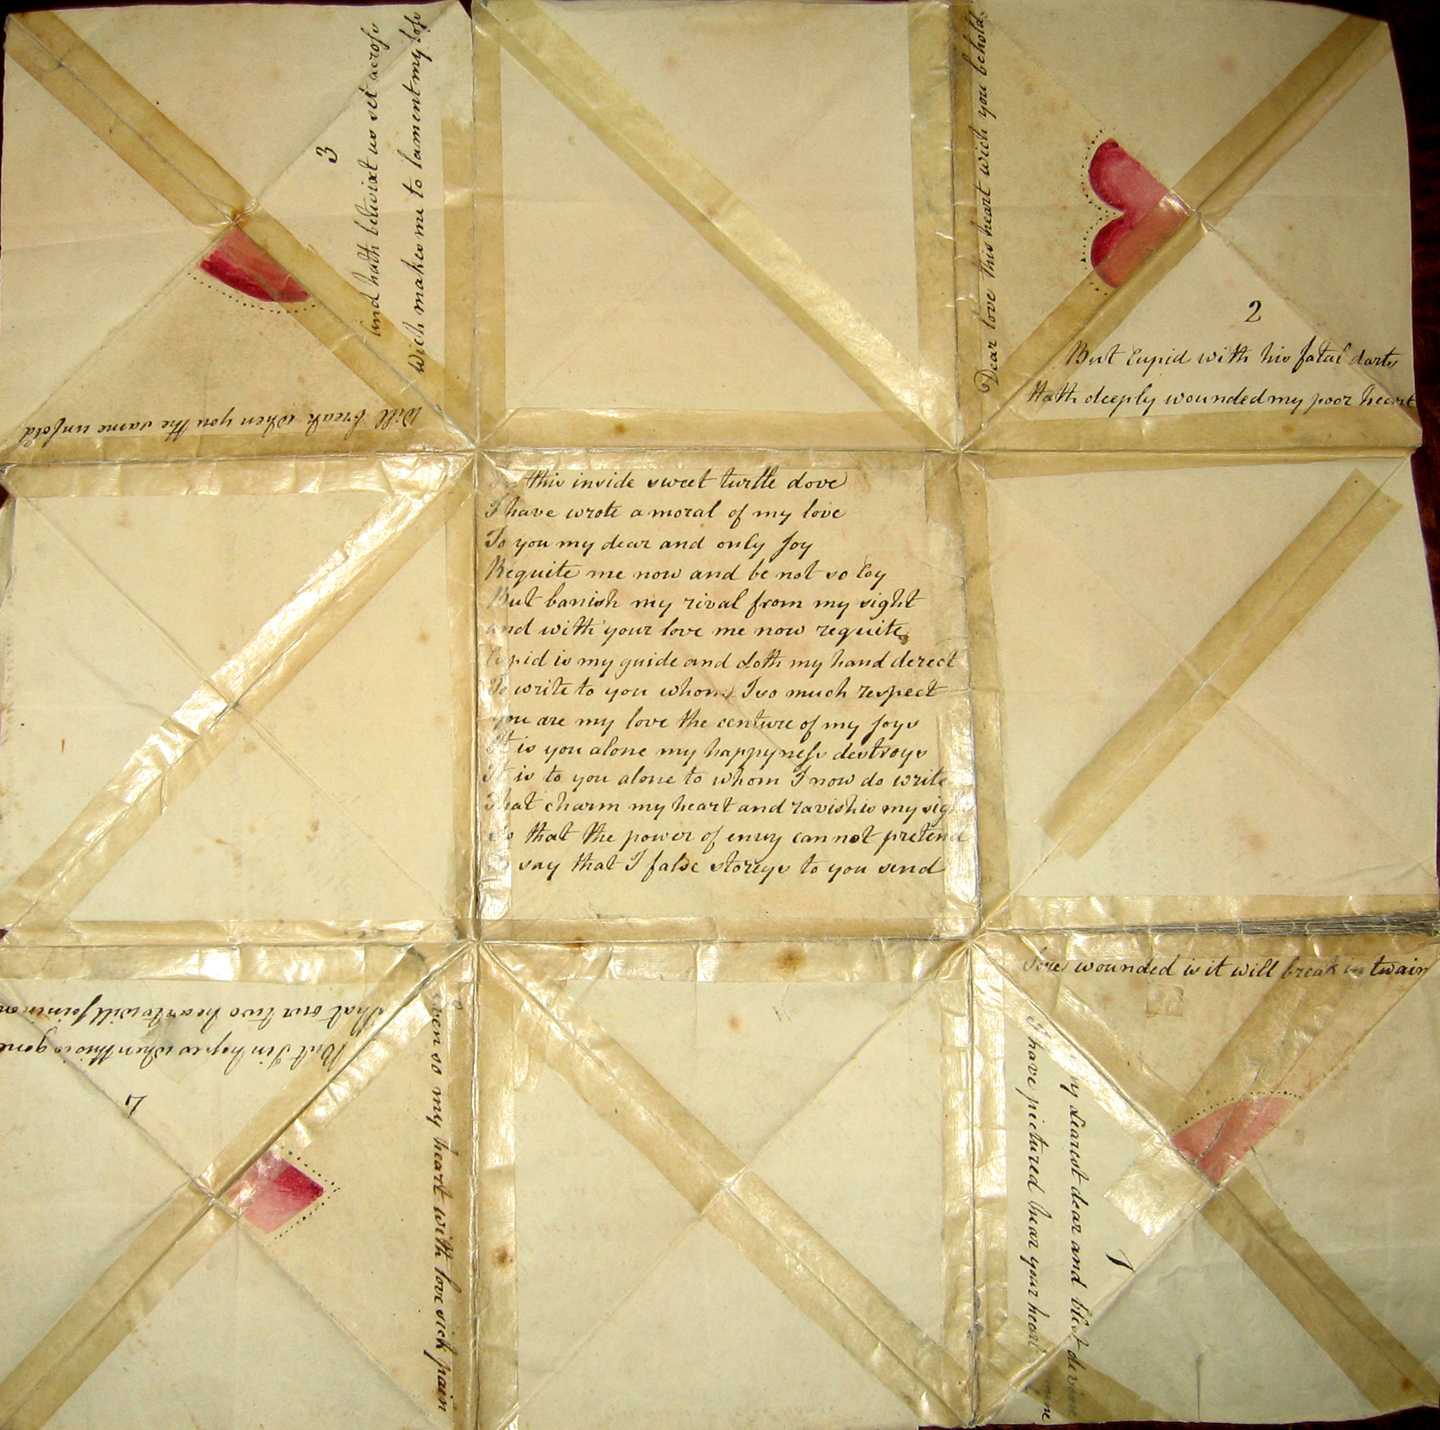 3
and hath betwixt us set across
Wich makes me to lament my loss
Will break when you the same unfold
Dear love this heart wich you behold
2
But Cupid with his fatal darts
Hath deeply wounded my poor heart
this inside sweet turtle dove
I have wrote a moral of my love
To you my dear and only Joy
Requite me now and be not so Coy
But banish my rival from my sight
and with your love me now requite
Cupid is my guide and doth my hand derect
To write to you whom I so much respect
you are my love the centure of my Joys
It is you alone my happyness destroys
It is to you alone to whom I now do write
That charm my heart and ravishis my sight
So that the power of envy cannot pretend
To say that I false storeys to you send
That our two hearts will join in one
But I in hopes when this is gone
4
Even so my heart with love sick pain
Sore wounded is it will break in twain
1
my dearest dear and blest devine
I have pictured hear your heart mine